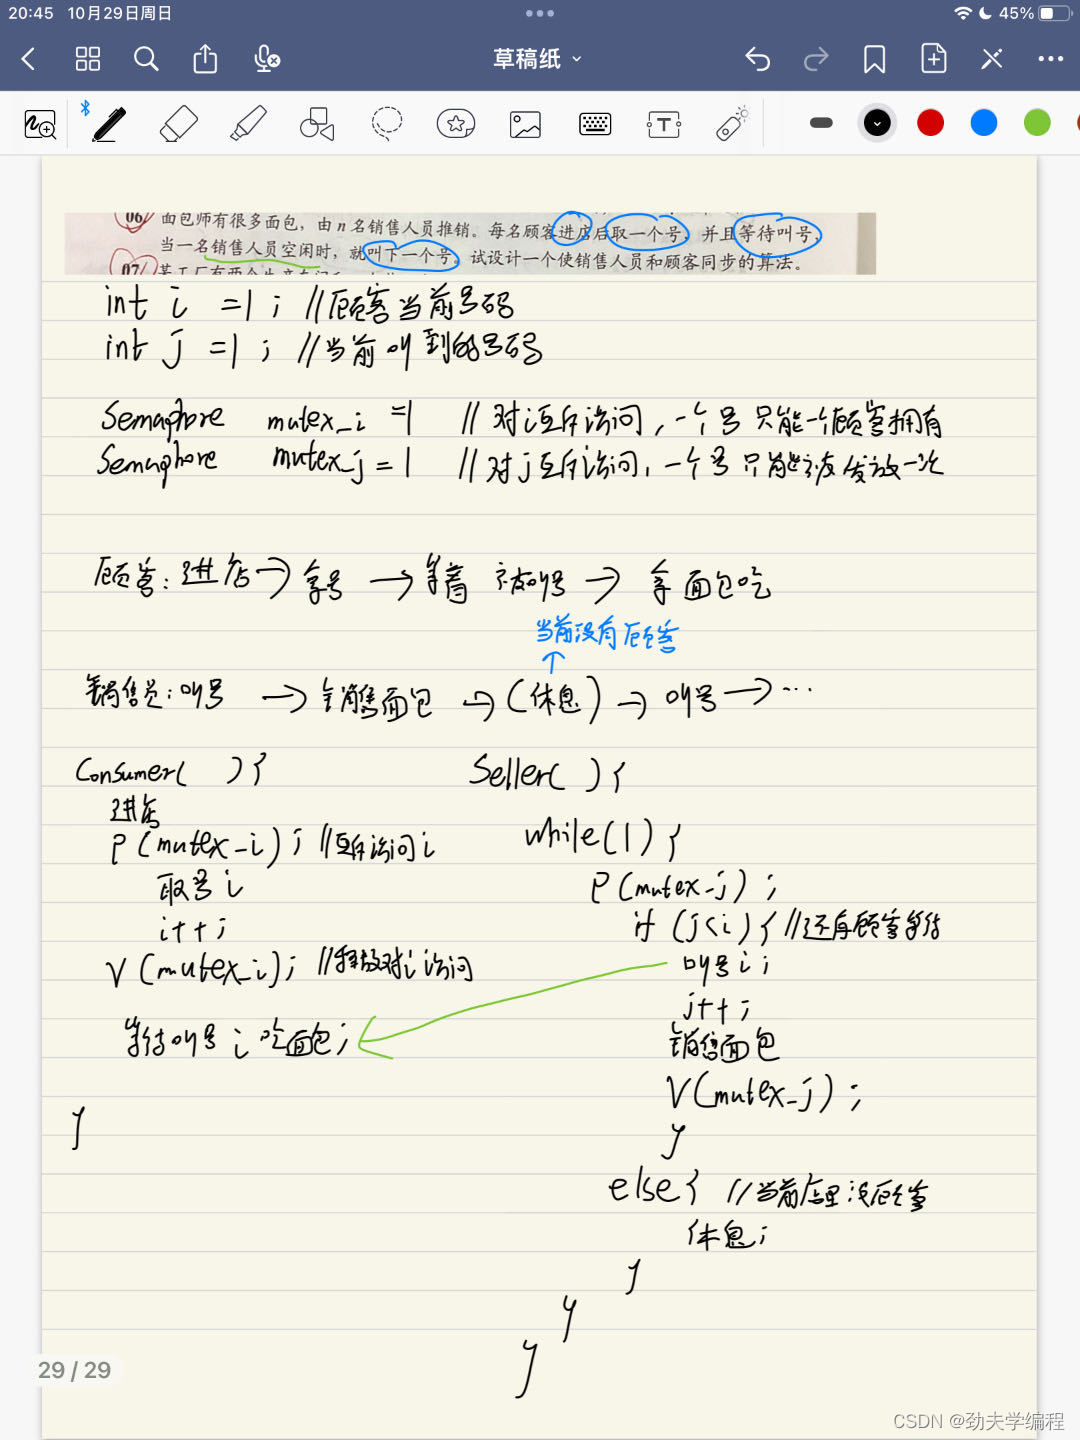 20:45 10月29日周日
45%
草稿纸
T
06. 面包师有很多面包，由n名销售人员推销。每名顾客进店后取一个号，并且等待叫号，
当一名销售人员空闲时，就叫下一个号。试设计一个使销售人员和顾客同步的算法。
07
int i =1; //顾客当前号码
int j =1; //当前叫到的号码
Semaphore mutex_i =1 //对i互斥访问，一个号只能一个顾客拥有
Semaphore mutex_j =1 //对j互斥访问，一个号只能被发放一次
顾客: 进店→拿号→等着被叫号→拿面包吃
当前没有顾客
↑
销售员: 叫号→销售面包→(休息)→叫号→...
Consumer( ){
进店
P(mutex_i); //互斥访问i
取号i
i++;
V(mutex_i); //释放对i访问
等待叫号i吃面包;
}
Seller( ){
while(1){
P(mutex_j);
if (j<i){ //还有顾客等待
叫号i;
j++;
销售面包
V(mutex_j);
}
else{ //当前店里没顾客
休息;
}
}
}
29 / 29
CSDN @劲夫学编程